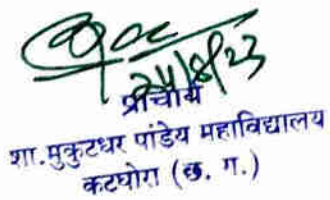 24/8/23
प्राचार्य
शा.मुकुटधर पांडेय महाविद्यालय
कटघोरा (छ. ग.)